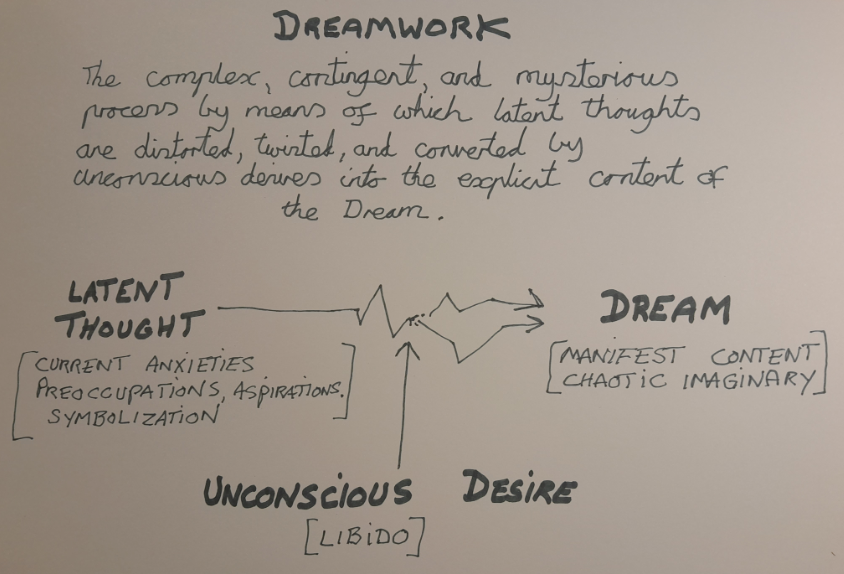 DREAMWORK
The complex, contingent, and mysterious
process by means of which latent thoughts
are distorted, twisted, and converted by
unconscious desires into the explicit content of
the Dream.
LATENT
THOUGHT
[CURRENT ANXIETIES
PREOCCUPATIONS, ASPIRATIONS.
SYMBOLIZATION]
DREAM
[MANIFEST CONTENT
CHAOTIC IMAGINARY]
UNCONSCIOUS DESIRE
[LIBIDO]